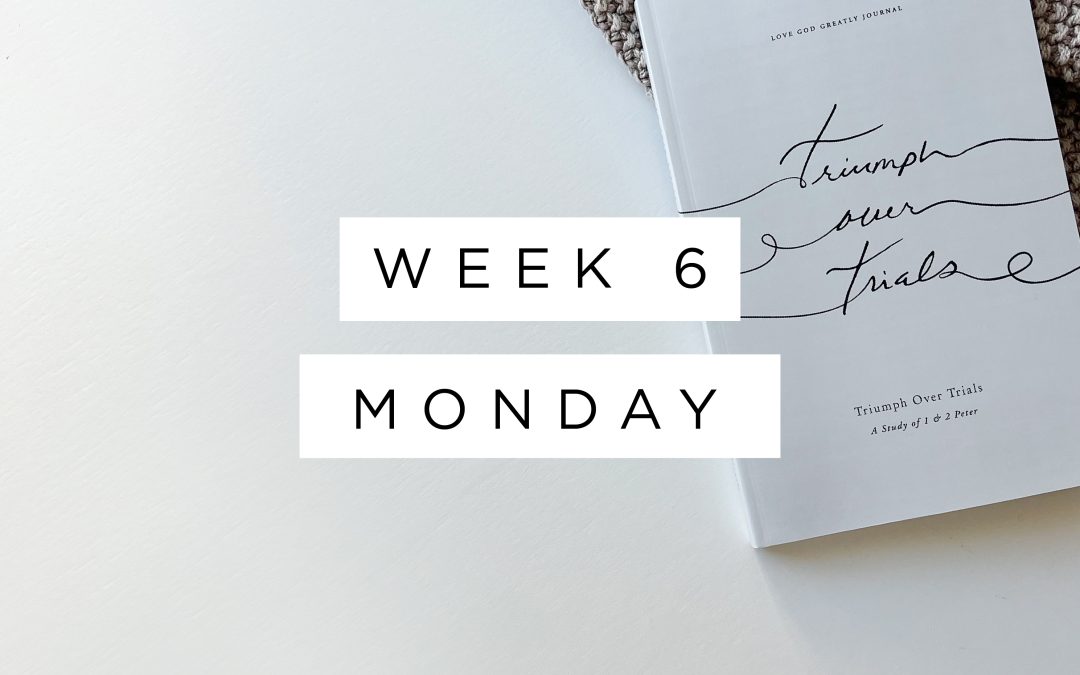 LOVE GOD GREATLY JOURNAL
Triumph
over
Trials
WEEK 6
MONDAY
Triumph Over Trials
A Study of 1 & 2 Peter